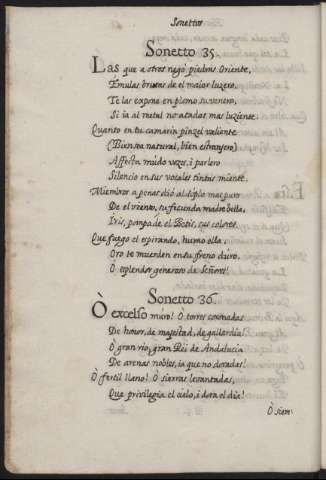 Sonettos
Sonetto 35.
Las que a otros negó piedras Oriente,
Émulas brutas de el maior luzero,
Te las expone en plomo su venero,
Si ia al metal no atadas mas luziente.
Quanto en tu camarin pinzel valiente
(Bien sea natural, bien estrangero)
Affecta mudo vozes, i parlero
Silencio en sus vocales tintas miente.
Miembros apenas dió al soplo mas puro
De el viento, su fecunda madre bella,
Iris, pompa de el Betis, sus colores.
Que fuego el espirando, humo ella,
Oro te muerden en su freno duro,
Ó esplendor generoso de Señores!
Sonetto 36.
Ò excelso muro! Ò torres coronadas
De honor, de majestad, de gallardia!
Ò gran rio, gran Rei de Andalucia
De arenas nobles, ia que no doradas!
Ò fertil llano! Ò sierras levantadas,
Que privilegia el cielo, i dora el dia!
Ò siem